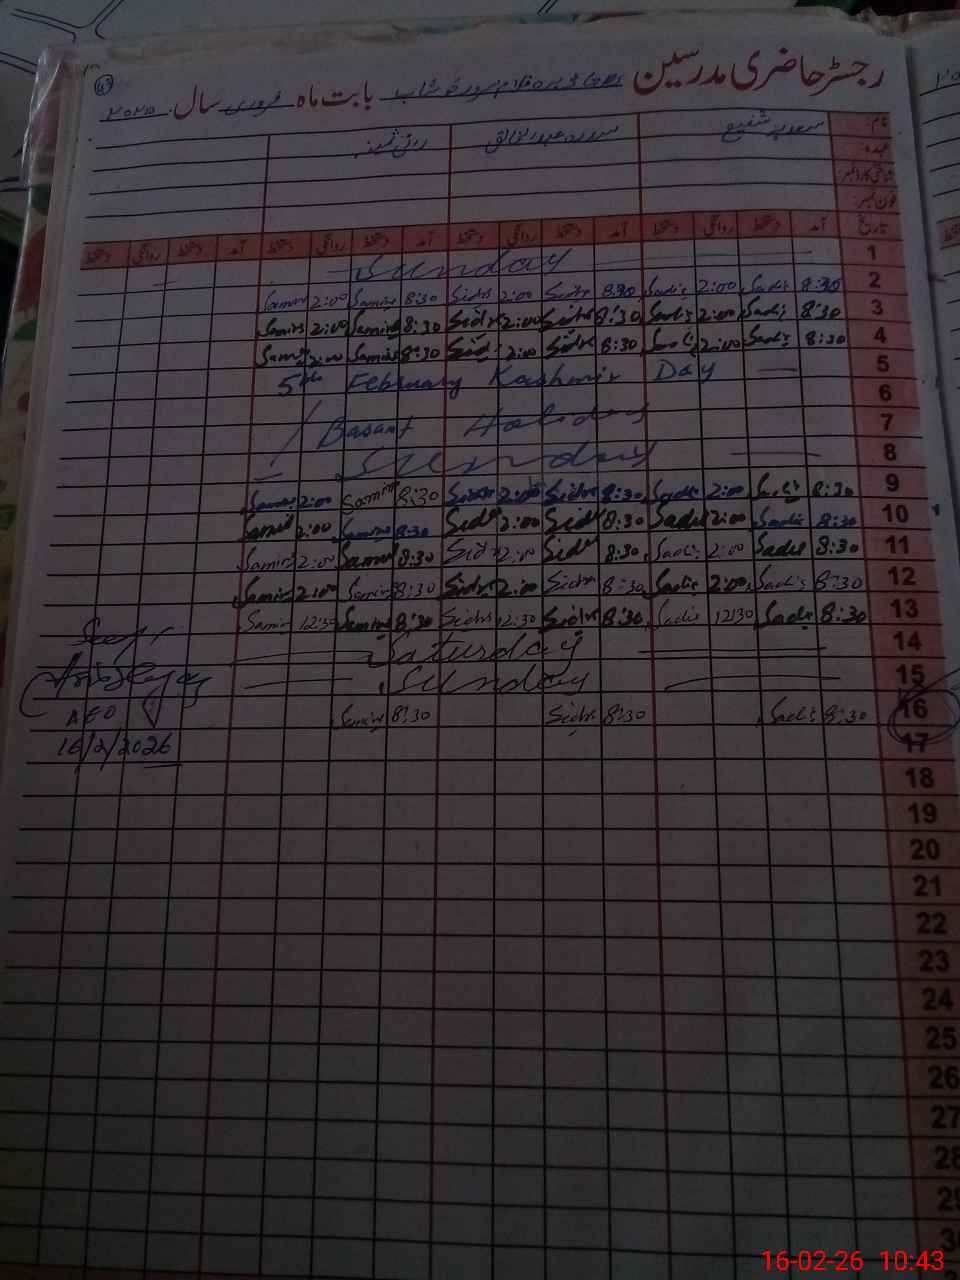 رجسٹر حاضری مدرسین بابت ماہ فروری سال
نام:
عہدہ
شناختی کارڈ نمبر:
فون نمبر:
تاریخ آمد دستخط روانگی دستخط آمد دستخط روانگی دستخط آمد دستخط روانگی دستخط آمد دستخط روانگی دستخط
Sunday 1
Samin 2:00 Samin 8:30 Sidra 2:00 Sidra 8:30 Sadis 2:00 Sadis 8:30 2
Samin 2:00 Samin 8:30 Sidra 2:00 Sidra 8:30 Sadis 2:00 Sadis 8:30 3
Samin 2:00 Samin 8:30 Sidra 2:00 Sidra 8:30 Sadis 2:00 Sadis 8:30 4
5th February Kashmir Day 5
6
Basant Holiday 7
Sunday 8
Samin 2:00 Samin 8:30 Sidra 2:00 Sidra 8:30 Sadis 2:00 Sadis 8:30 9
Samin 2:00 Samin 8:30 Sidra 2:00 Sidra 8:30 Sadis 2:00 Sadis 8:30 10
Samin 2:00 Samin 8:30 Sidra 2:00 Sidra 8:30 Sadis 2:00 Sadis 8:30 11
Samin 2:00 Samin 8:30 Sidra 2:00 Sidra 8:30 Sadis 2:00 Sadis 8:30 12
Samin 12:30 Samin 8:30 Sidra 12:30 Sidra 8:30 Sadis 12:30 Sadis 8:30 13
Saturday 14
Sunday 15
AEO Samin 8:30 Sidra 8:30 Sadis 8:30 16
16/2/2026 17
18
19
20
21
22
23
24
25
26
27
28
29
30
16-02-26 10:43